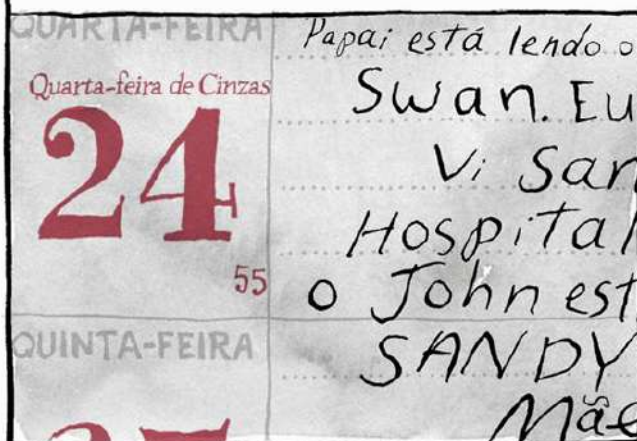 QUARTA-FEIRA
Quarta-feira de Cinzas
24
55
QUINTA-FEIRA
Papai está lendo o
Swan. Eu
Vi San
Hospital
o John est
SANDY
Mãe